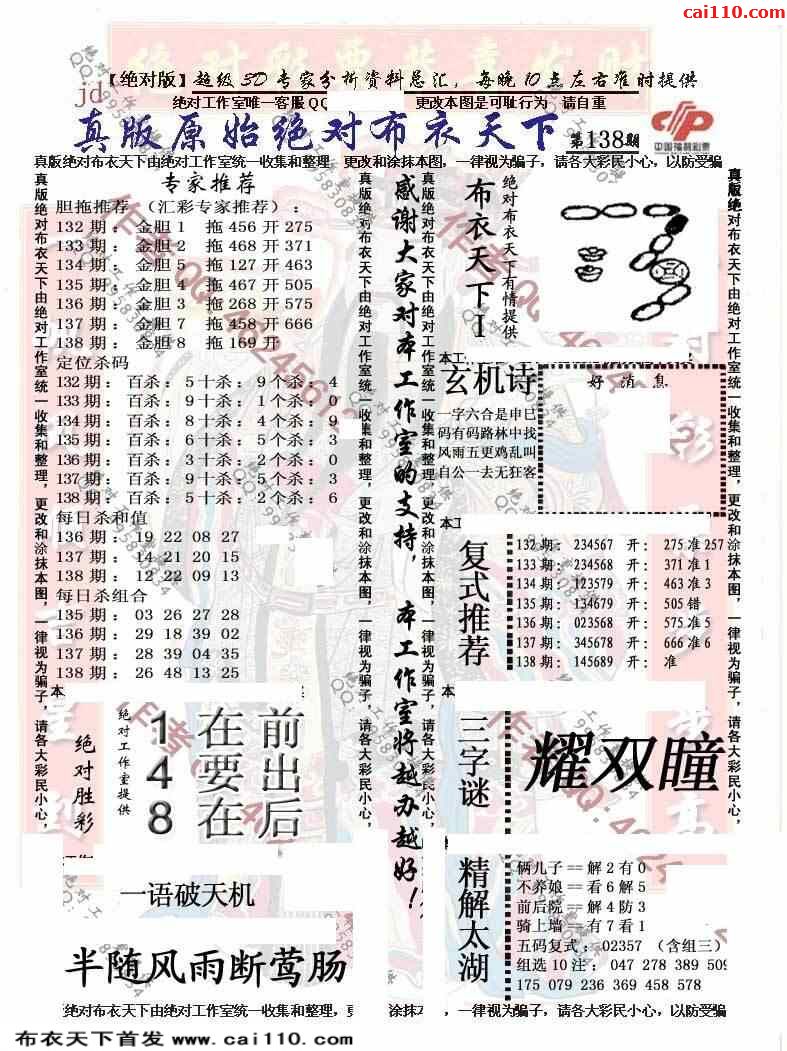 cai110.com
【绝对版】超级3D专家分析资料总汇，每晚10点左右准时提供
jd
绝对工作室唯一客服QQ 更改本图是可耻行为 请自重
真版原始绝对布衣天下 第138期
中国福利彩票
真版绝对布衣天下由绝对工作室统一收集和整理，更改和涂抹本图，一律视为骗子，请各大彩民小心，以防受骗
真版绝对布衣天下由绝对工作室统一收集和整理，更改和涂抹本图，一律视为骗子，请各大彩民小心，
专家推荐
胆拖推荐 （汇彩专家推荐）：
132期：金胆1 拖456开275
133期：金胆2 拖468开371
134期：金胆5 拖127开463
135期：金胆4 拖467开505
136期：金胆3 拖268开575
137期：金胆7 拖458开666
138期：金胆8 拖169开
定位杀码
132期：百杀：5十杀：9个杀：4
133期：百杀：9十杀：1个杀：0
134期：百杀：8十杀：4个杀：9
135期：百杀：6十杀：5个杀：3
136期：百杀：3十杀：2个杀：0
137期：百杀：9十杀：5个杀：3
138期：百杀：5十杀：2个杀：6
每日杀和值
136期：19 22 08 27
137期：14 21 20 15
138期：12 22 09 13
每日杀组合
135期：03 26 27 28
136期：29 18 39 02
137期：28 39 04 35
138期：26 48 13 25
真版绝对布衣天下由绝对工作室统一收集和整理，更改和涂抹本图，一律视为骗子，请各大彩民小心，
感谢大家对本工作室的支持，本工作室将越办越好！
真版绝对布衣天下由绝对工作室统一收集和整理，更改和涂抹本图，一律视为骗子，请各大彩民小心，
布衣天下I
绝对布衣天下有情提供
真版绝对布衣天下由绝对工作室统一收集和整理，更改和涂抹本图，一律视为骗子，请各大彩民小心，
本工
玄机诗
一字六合是申巳
码有码路林中找
风雨五更鸡乱叫
自公一去无狂客
好消息
本工
复式推荐
132期：234567 开：275准257
133期：234568 开：371准1
134期：123579 开：463准3
135期：134679 开：505错
136期：023568 开：575准5
137期：345678 开：666准6
138期：145689 开： 准
本
绝对胜彩
绝对工作室提供
1 在 前
4 要 出
8 在 后
本
三字谜
耀双瞳
一语破天机
半随风雨断莺肠
精解太湖
俩儿子==解2有0
不养娘==看6解5
前后院==解4防3
骑上墙==有7看1
五码复式：02357 （含组三）
组选10注：047 278 389 509
175 079 236 369 458 578
真版绝对布衣天下由绝对工作室统一收集和整理，更 涂抹本 ，一律视为骗子，请各大彩民小心，以防受骗
布衣天下首发 www.cai110.com